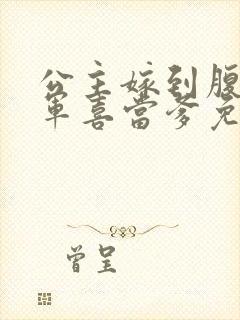 公主嫁到腹
军喜当爹免
曾呈